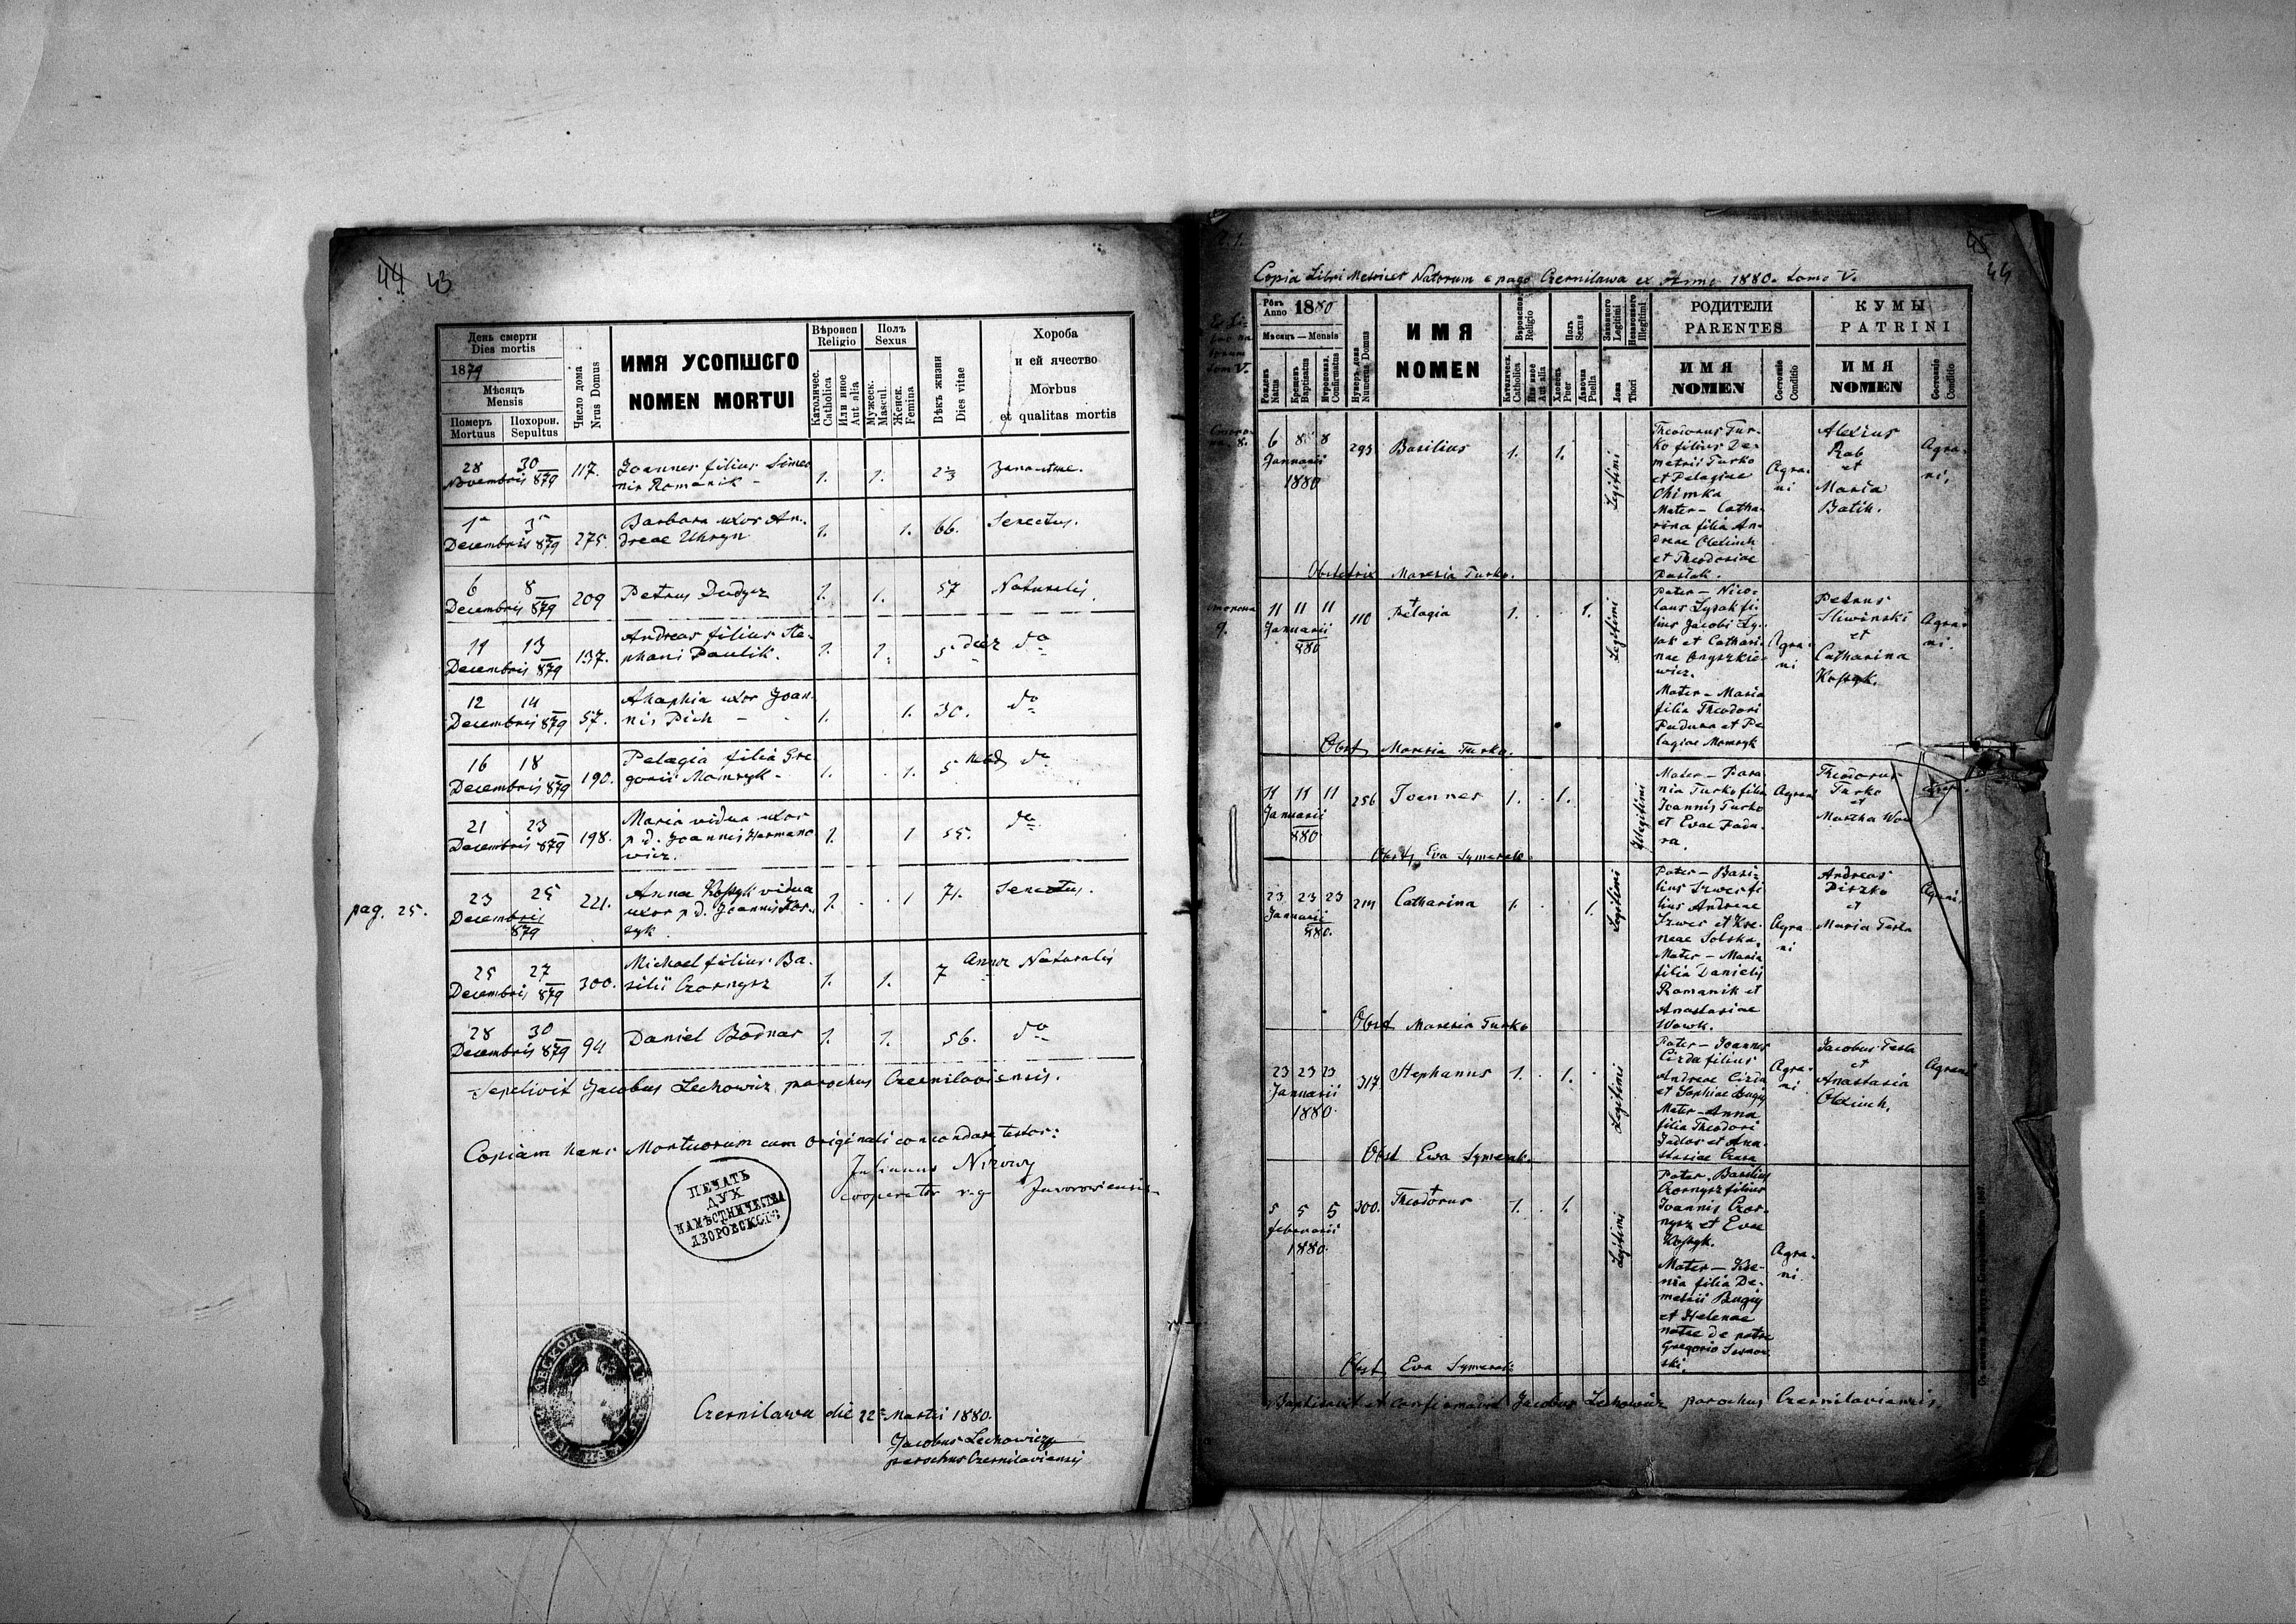 44 43
День смерти
Dies mortis
1879
Мѣсяць
Mensis
Померъ
Mortuus
Похорон.
Sepultus
Число дома
Nrus Domus
ИМЯ УСОПШОГО
NOMEN MORTUI
Вѣроисп
Religio
Католичес.
Catholica
Или иное
Aut alia
Полъ
Sexus
Мужеск.
Mascul.
Женск.
Femina
Вѣкъ жизни
Dies vitae
Хороба
и ей ячество
Morbus
et qualitas mortis
28 30
Novembris 879
117.
Joannes filius Simeo
nis Romanik -
1. 1.
1 3
Decembris 879
275.
Barbara uxor An-
dreae Uhryn
1. 1. 66. Senectus.
6 8
Decembris 879
209
Petrus Dudycz
1. 1. 57 Naturalis.
11 13
Decembris 879
137.
Andreas filius Ste-
phani Paulik.
1. 1. 5 dier do
12 14
Decembris 879
57.
Ahaphia uxor Joan-
nis Pich -
1. 1. 30. do
16 18
Decembris 879
190.
Pelagia filia Gre-
gorii Momryk -
1. 1. 5 do
21 23
Decembris 879
198.
Maria vidua uxor
p. d. Joannis Harmano
wicz.
1. 1 55. do
pag. 25.
23 25
Decembris
879
221.
Anna Kossyk vidua
uxor p. d. Joannis Kos-
syk
1. 1 71. Senectus.
25 27
Decembris 879
300.
Michael filius Ba-
silii Czornysz
1. 1. 7 Annor Naturalis
28 30
Decembris 879
94
Daniel Bodnar
1. 1. 56. do
Sepelivit Jacobus Lechowicz parochus Czernilaviensis.
Copiam hanc Mortuorum cum originali concordare testor:
Julianus Nizowy
cooperator r. g. Jaworoviensis
ПЕЧАТЬ
ДУХ
НАМѢСТНИЧЕСТВА
ЯВОРОВСКОГО
Czernilawa die 22 Martii 1880.
Jacobus Lechowicz
parochus Czernilaviensis
45
44
Copia Libri Metrices Natorum e pago Czernilawa ex Anno 1880. tomo V.
Рôкъ
Anno 1880
Мѣсяцъ — Mensis
Рожденъ
Natus
Крещенъ
Baptisatus
Муропомаз.
Confirmatus
Нумеръ дома
Numerus Domus
ИМЯ
NOMEN
Вѣроиспов.
Religio
Католическ.
Catholica
Или иное
Aut alia
Полъ
Sexus
Хлопецъ
Puer
Дѣвочка
Puella
Законного
Legitimi
Незаконного
Illegitimi
Ложа
Thori
РОДИТЕЛИ
PARENTES
ИМЯ
NOMEN
Состояніе
Conditio
КУМЫ
PATRINI
ИМЯ
NOMEN
Состояніе
Conditio
6 8 8
Januarii
1880
293
Basilius
1. 1.
Legitimi
Theodorus Tur-
ko filius De-
metrii Turko
et Pelagiae
Chimka
Mater - Catha-
rina filia An-
dreae Olexiuch
et Theodosiae
Pastak.
Agra-
ni
Alexius
Rab
et
Maria
Batih.
Agra-
ni.
Obstetrix Maresia Turko.
11 11 11
Januarii
880
110
Pelagia
1. 1.
Legitimi
Pater - Nico-
laus Lysak fi-
lius Jacobi Ly-
sak et Cathari-
nae Onyszkie-
wicz.
Mater - Maria
filia Theodori
Padura et Pe
lagiae Momryk
Agra-
ni
Petrus
Sliwinski
et
Catharina
Kossyk.
Agra-
ni.
Obst Maresia Turko.
11 11 11
Januarii
880
256
Joannes
1. 1.
Illegitimi
Mater - Para
nia Turko filia
Joannis Turko
et Evae Padu-
ra.
Agrani
Theodorus
Turko
et
Martha
Obst Eva Symerak.
23 23 23
Januarii
880.
Catharina
1. 1.
Legitimi
Pater - Basi-
lius Szwec fi-
lius Andreae
Szwec et Xe-
niae Solska.
Mater - Maria
filia Danielis
Romanik et
Anastasiae
Wowk.
Agra-
ni
Andreas
Piszko
et
Maria Tesla
Agrani
Obst Maresia Turko
23 23 23
Januarii
1880.
317
Stephanus
1. 1.
Legitimi
Pater - Joannes
Cizda filius
Andreae Cizda
et Sophiae Bugiy
Mater - Anna
filia Theodori
et Ana-
stasiae
Agra-
ni
Jacobus Tesla
et
Anastasia
Olexiuch.
Agrani
Obst Ewa Symerak.
5 5 5
februarii
1880.
300.
Theodorus
1. 1.
Legitimi
Pater. Basilius
Czornysz filius
Joannis Czor-
nysz et Evae
Kossyk.
Mater - Xe-
nia filia De-
metrii Bugiy
et Helenae
natae de patre
Gregorio
Agra-
ni.
Obst Eva Symerak
Baptisavit et confirmavit Jacobus Lechowicz parochus Czernilaviensis.